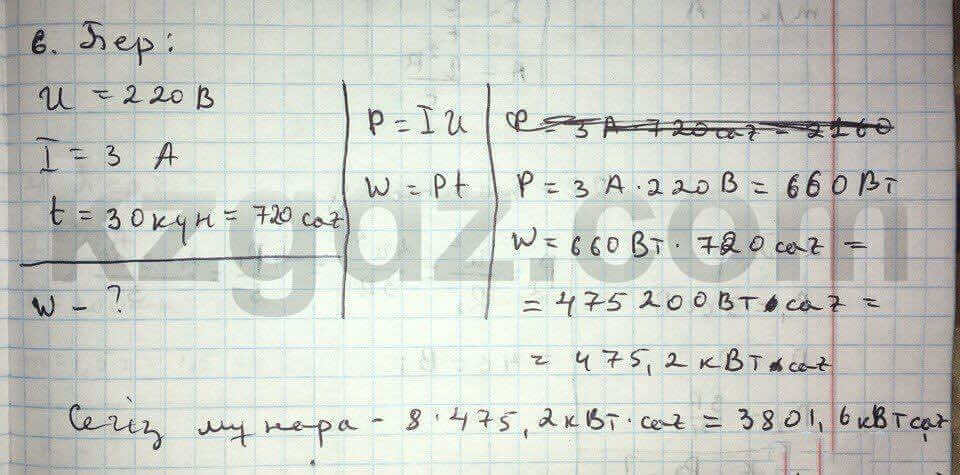 6. Бер:
U = 220 В
I = 3 А
t = 30 күн = 720 сағ
W - ?
P = I U
W = Pt
P = 3 А · 720 сағ = 2160
P = 3 А · 220 В = 660 Вт
W = 660 Вт · 720 сағ =
= 475 200 Вт · сағ =
= 475,2 кВт · сағ
Сегіз мұнара - 8 · 475,2 кВт · сағ = 3801,6 кВт сағ
kzgdz.com